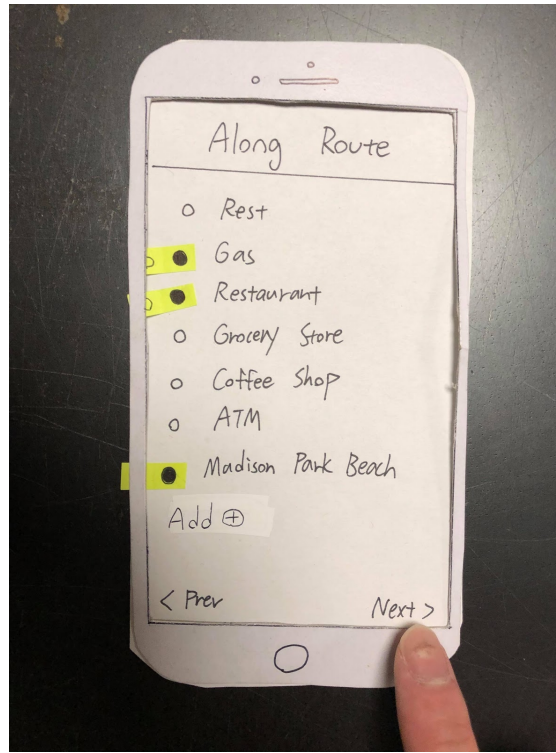 Along Route
Rest
Gas
Restaurant
Grocery Store
Coffee Shop
ATM
Madison Park Beach
Add ⊕
< Prev
Next >